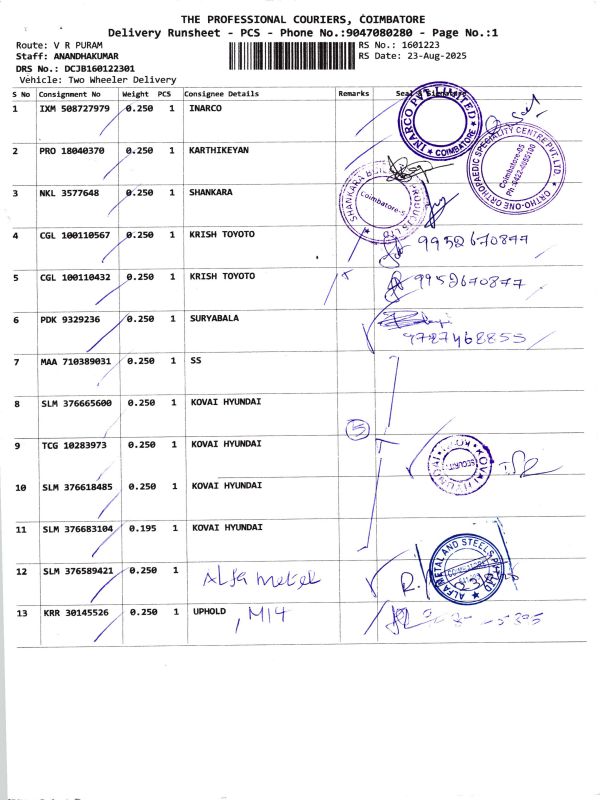 THE PROFESSIONAL COURIERS, COIMBATORE
Delivery Runsheet - PCS - Phone No.:9047080280 - Page No.:1
Route: V R PURAM
RS No.: 1601223
Staff: ANANDHAKUMAR
RS Date: 23-Aug-2025
DRS No.: DCJB160122301
Vehicle: Two Wheeler Delivery
S No Consignment No Weight PCS Consignee Details Remarks
1 IXM 508727979 0.250 1 INARCO
INARCO PVT. LIMITED COIMBATORE
2 PRO 18040370 0.250 1 KARTHIKEYAN
ORTHO-ONE ORTHOPAEDIC SPECIALITY CENTRE PVT. LTD.
Coimbatore-05
3 NKL 3577648 0.250 1 SHANKARA
SHANKARA PRODUCTS LTD
Coimbatore-5
4 CGL 100110567 0.250 1 KRISH TOYOTO 9952670877
5 CGL 100110432 0.250 1 KRISH TOYOTO 9952670877
6 PDK 9329236 0.250 1 SURYABALA
9787468855
7 MAA 710389031 0.250 1 SS
8 SLM 376665600 0.250 1 KOVAI HYUNDAI
5
9 TCG 10283973 0.250 1 KOVAI HYUNDAI
KOVAI HYUNDAI SECURITY
10 SLM 376618485 0.250 1 KOVAI HYUNDAI
11 SLM 376683104 0.195 1 KOVAI HYUNDAI
12 SLM 376589421 0.250 1 Alfa metal
ALFA METAL AND STEELS PVT LTD
13 KRR 30145526 0.250 1 UPHOLD , M14